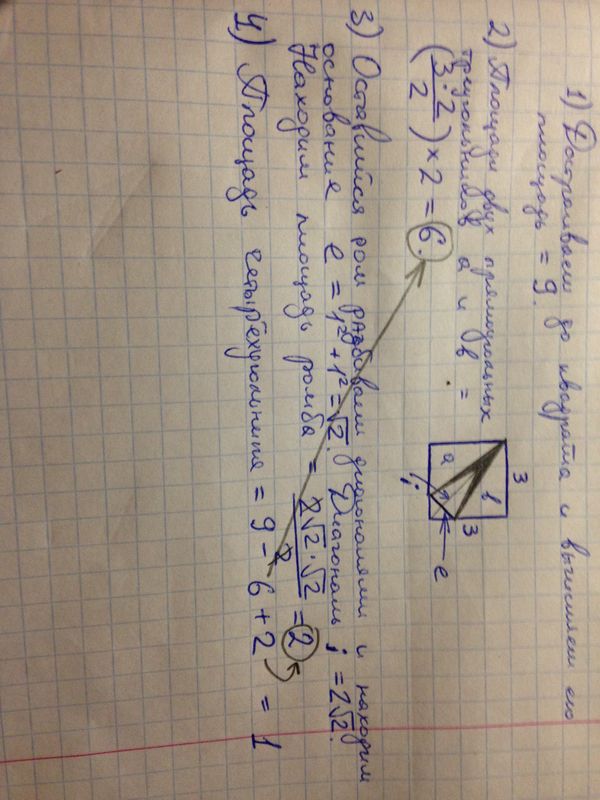 1) Достраиваем до квадрата и вычисляем его
площадь = 9.
2) Площади двух прямоугольных
треугольников a и b =
(3·2/2) × 2 = 6.
3
3
a
b
i
e
3) Оставшийся ром разбиваем диагоналями и находим
основание e = 1² + 1² = √2. Диагональ i = 2√2.
Находим площадь ромба = 2√2·√2/2 = 2
4) Площадь четырёхугольника = 9 - 6 + 2 = 1